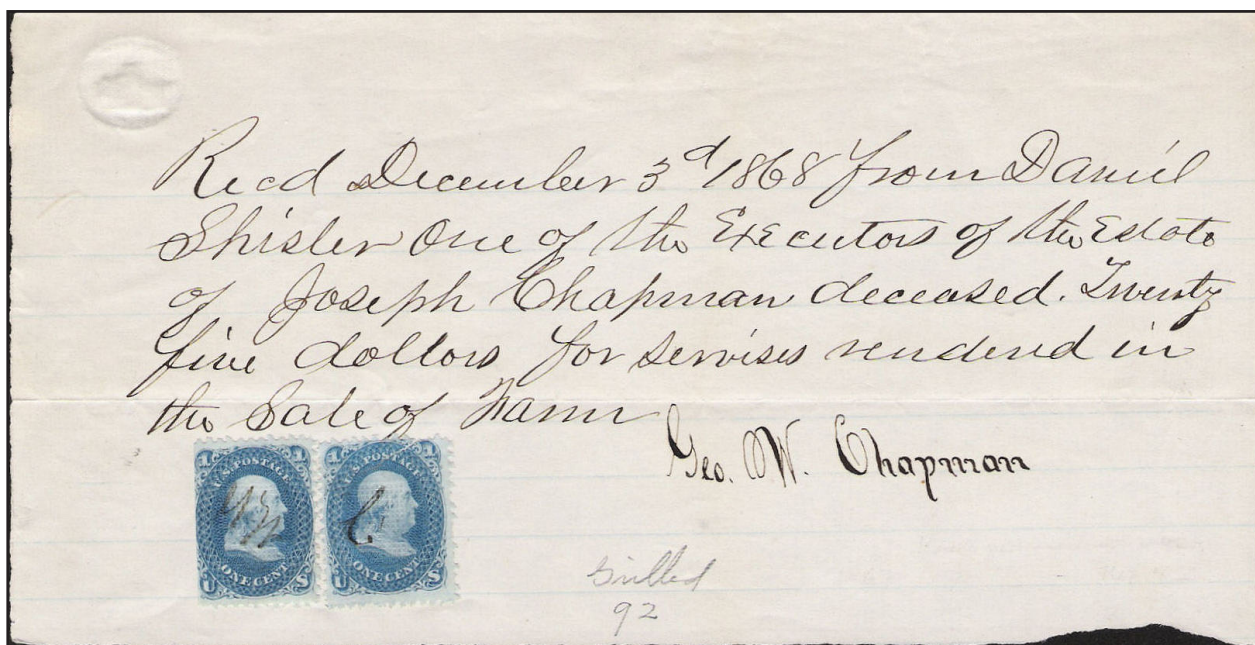 Recd December 3d 1868 from Daniel
Shisler One of the Executors of the Estate
of Joseph Chapman deceased. Twenty
five dollors for servises rendered in
the Sale of Farm
Geo. W. Chapman
1 1 1 1
U.S. POSTAGE U.S. POSTAGE
GW C
ONE CENT ONE CENT
U S U S
Grilled
92